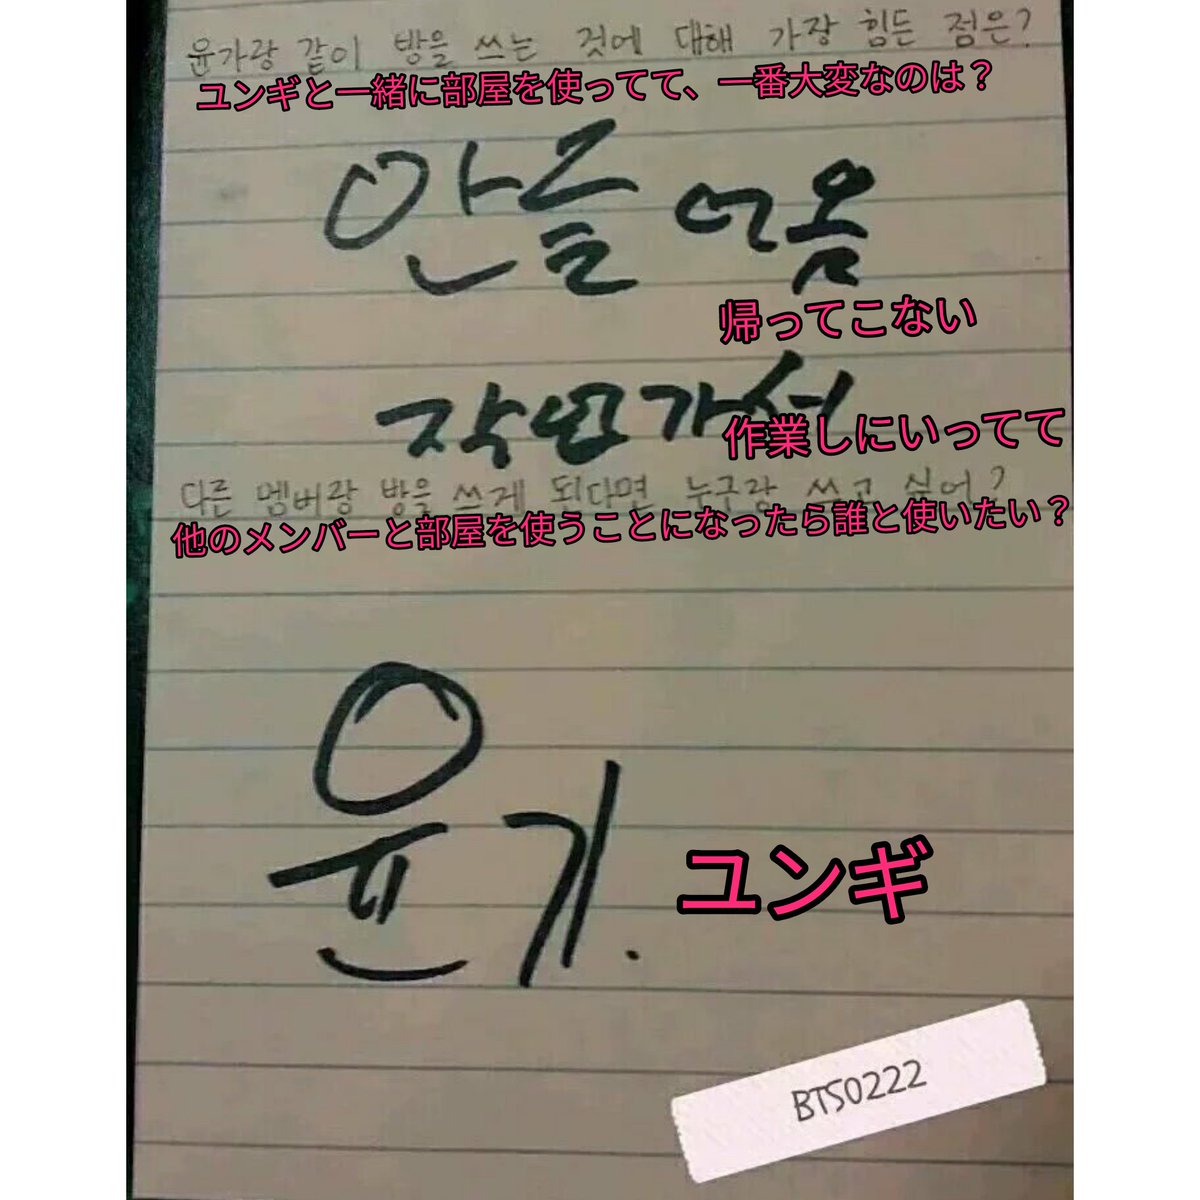 윤기랑 같이 방을 쓰는 것에 대해 가장 힘든 점은?
ユンギと一緒に部屋を使ってて、一番大変なのは？
안들어옴
帰ってこない
작업가서
作業しにいってて
다른 멤버랑 방을 쓰게 된다면 누구랑 쓰고 싶어?
他のメンバーと部屋を使うことになったら誰と使いたい？
윤기.
ユンギ
BTS0222